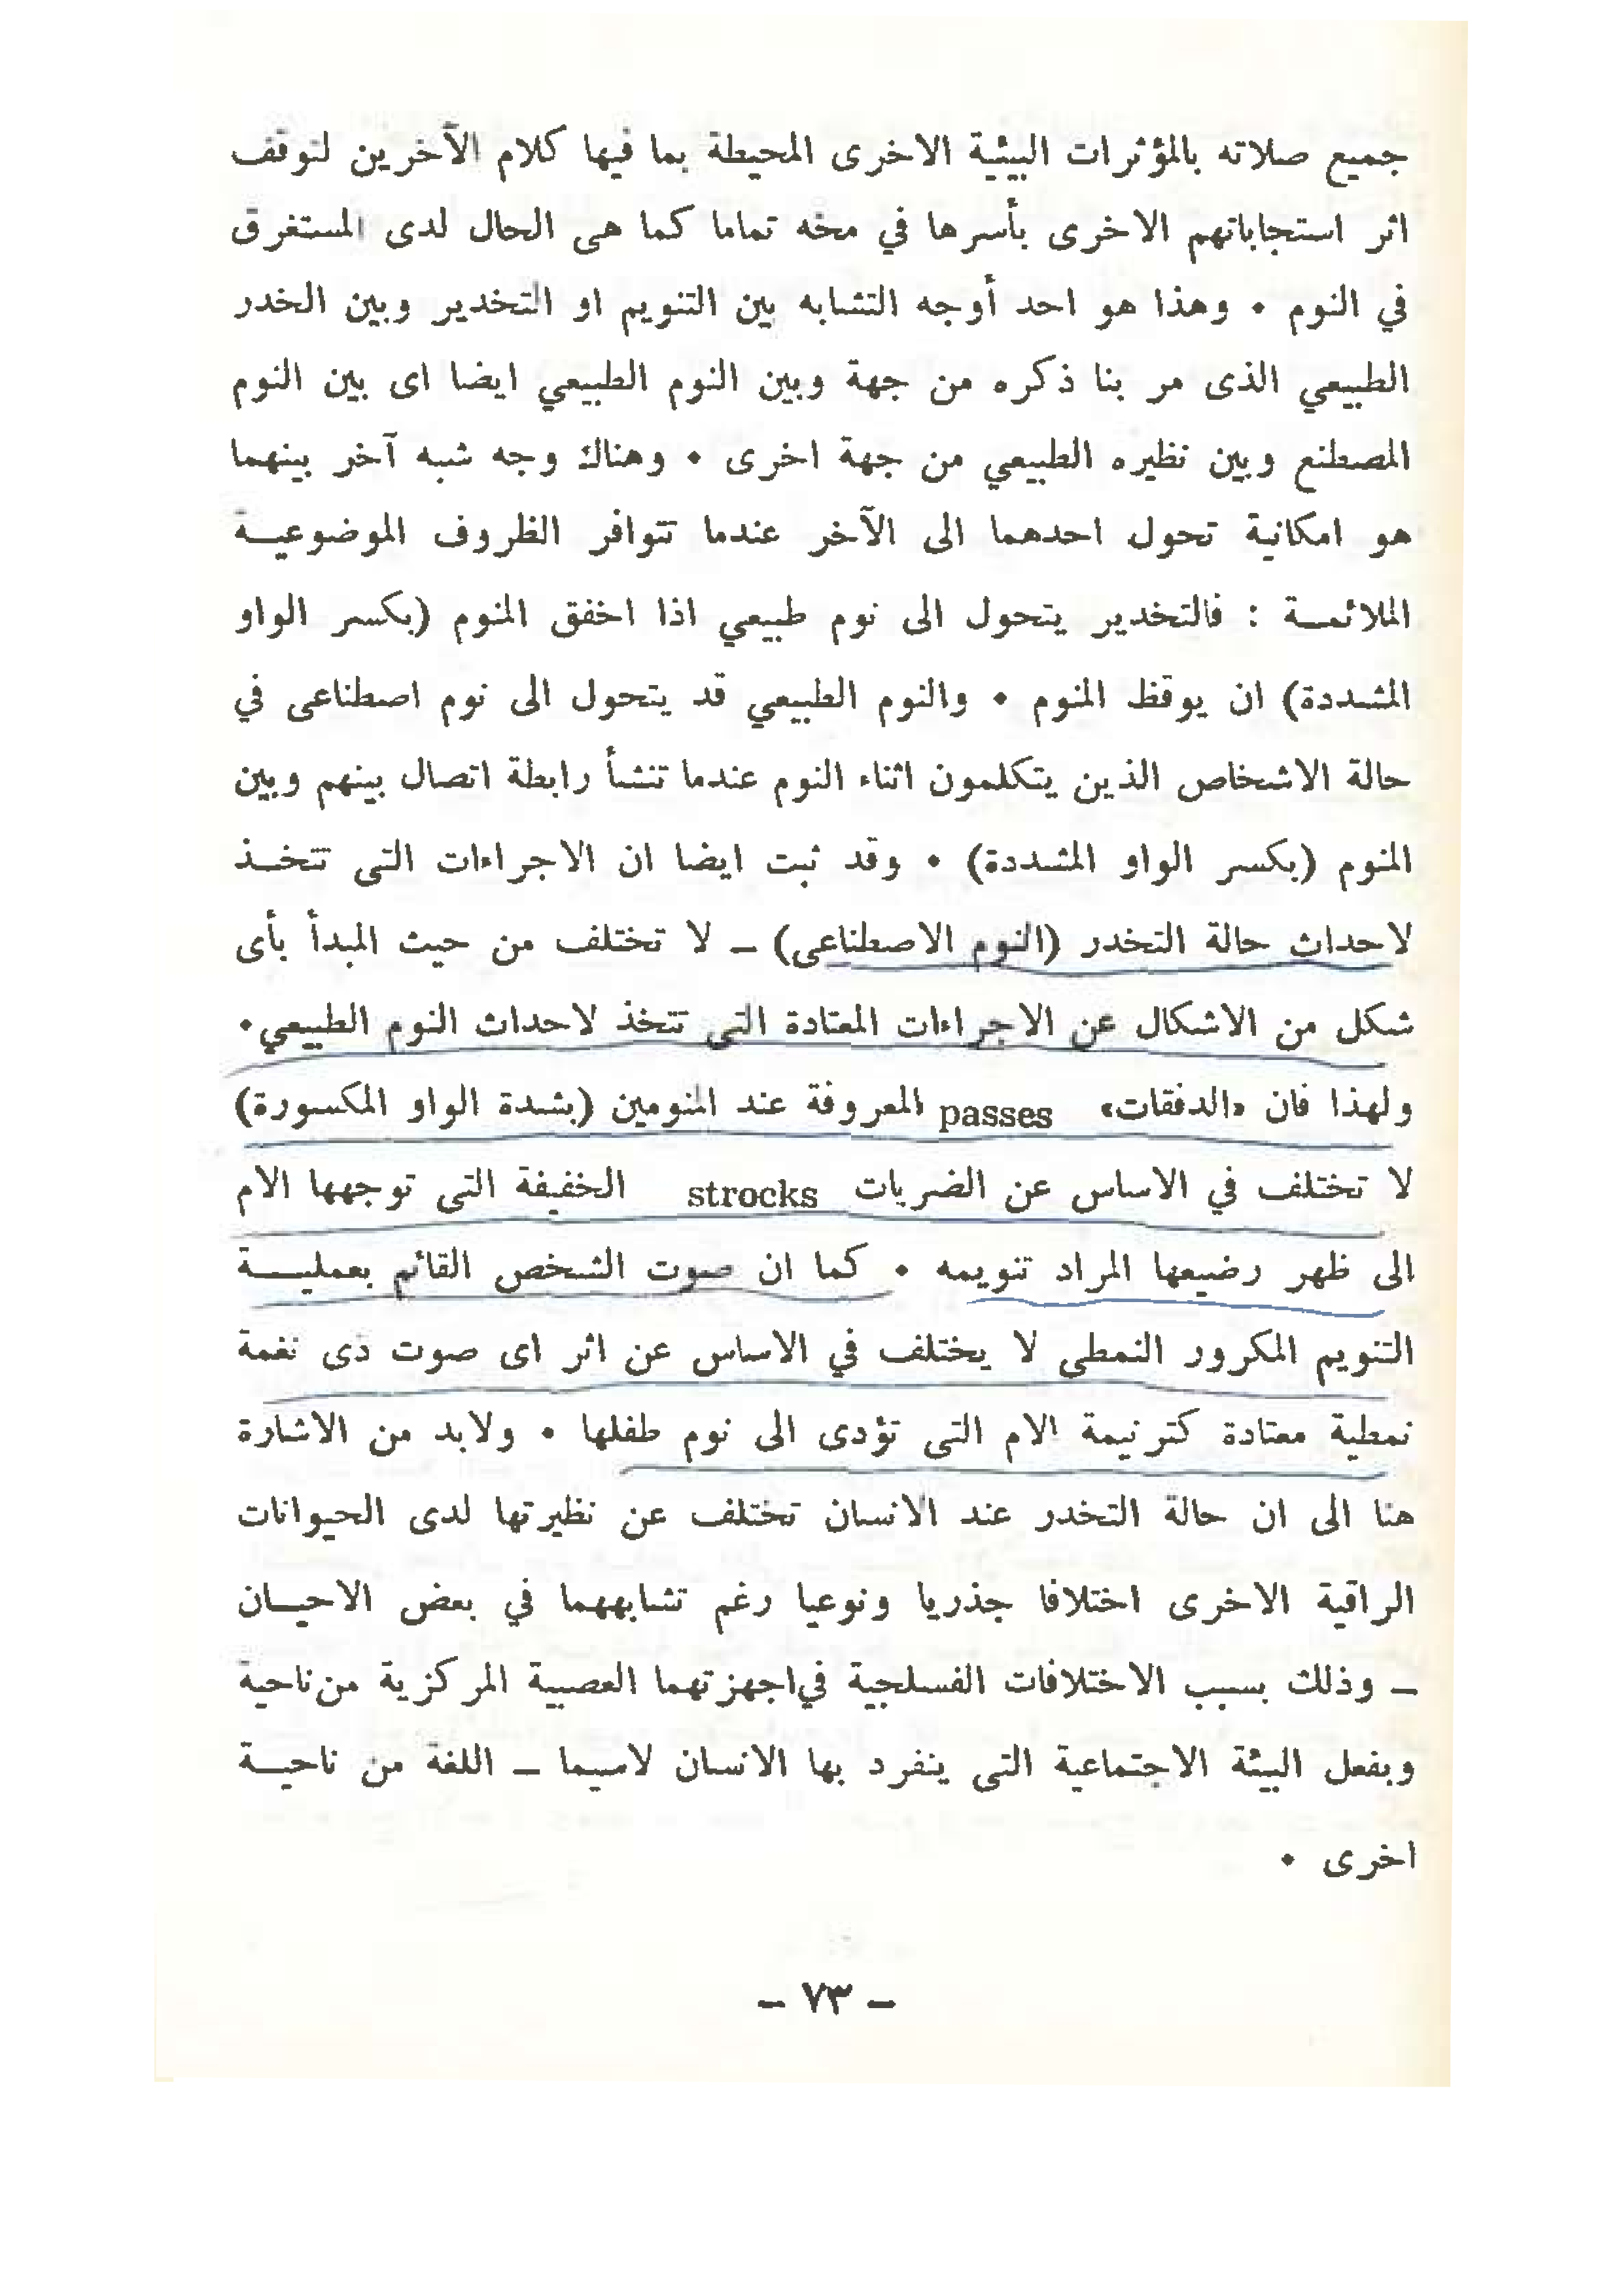 جميع صلاته بالمؤثرات البيئية الاخرى المحيطة بما فيها كلام الآخرين لتوقف
اثر استجاباتهم الاخرى بأسرها في مخه تماما كما هى الحال لدى المستغرق
في النوم • وهذا هو احد أوجه التشابه بين التنويم او التخدير وبين الخدر
الطبيعي الذى مر بنا ذكره من جهة وبين النوم الطبيعي ايضا اى بين النوم
المصطنع وبين نظيره الطبيعي من جهة اخرى • وهناك وجه شبه آخر بينهما
هو امكانية تحول احدهما الى الآخر عندما تتوافر الظروف الموضوعيـة
الملائمـة : فالتخدير يتحول الى نوم طبيعي اذا اخفق المنوم (بكسر الواو
المشددة) ان يوقظ المنوم • والنوم الطبيعي قد يتحول الى نوم اصطناعى في
حالة الاشخاص الذين يتكلمون اثناء النوم عندما تنشأ رابطة اتصال بينهم وبين
المنوم (بكسر الواو المشددة) • وقد ثبت ايضا ان الاجراءات التى تتخـذ
لاحداث حالة التخدر (النوم الاصطناعى) ـ لا تختلف من حيث المبدأ بأى
شكل من الاشكال عن الاجراءات المعتادة التى تتخذ لاحداث النوم الطبيعي•
ولهذا فان «الدفقات» passes المعروفة عند المنومين (بشدة الواو المكسورة)
لا تختلف في الاساس عن الضربات strocks الخفيفة التى توجهها الام
الى ظهر رضيعها المراد تنويمه • كما ان صوت الشخص القائم بعمليـــة
التنويم المكرور النمطى لا يختلف في الاساس عن اثر اى صوت ذى نغمة
نمطية معتادة كترنيمة الام التى تؤدى الى نوم طفلها • ولابد من الاشارة
هنا الى ان حالة التخدر عند الانسان تختلف عن نظيرتها لدى الحيوانات
الراقية الاخرى اختلافا جذريا ونوعيا رغم تشابههما في بعض الاحيـان
ـ وذلك بسبب الاختلافات الفسلجية في اجهزتهما العصبية المركزية من ناحية
وبفعل البيئة الاجتماعية التى ينفرد بها الانسان لاسيما ـ اللغة من ناحيـة
اخرى •
ـ ٧٣ ـ